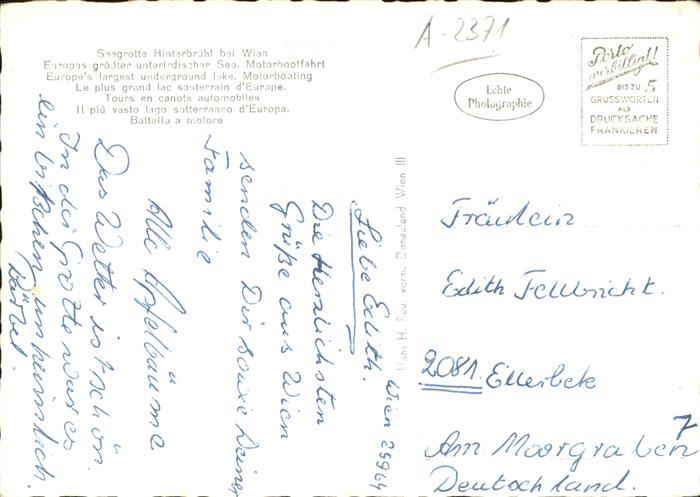 A-2371
Seegrotte Hinterbrühl bei Wien
Europas größter unterirdischer See. Motorbootfahrt
Europe's largest underground lake. Motorboating
Le plus grand lac souterrain d'Europe.
Tours en canots automobiles
Il più vasto lago sotterraneo d'Europa.
Battello a motore
Echte
Photographie
Porto
verbilligt!
BIS ZU 5
GRUSSWORTEN
ALS
DRUCKSACHE
FRANKIEREN
Wien 25964
Liebe Edith.
Die Herzlichsten
Grüße aus Wien
senden Dir sowie Deiner
Familie
Alle Apfelbäume
Das Wetter ist schön.
In der Grotte war es
ein bißchen unheimlich.
Bärbel.
Hans H. Pau, vorm. Donauland, Wien III
Fräulein
Edith Fellbricht.
2081 Ellerbek
Am Moorgraben 7
Deutschland.